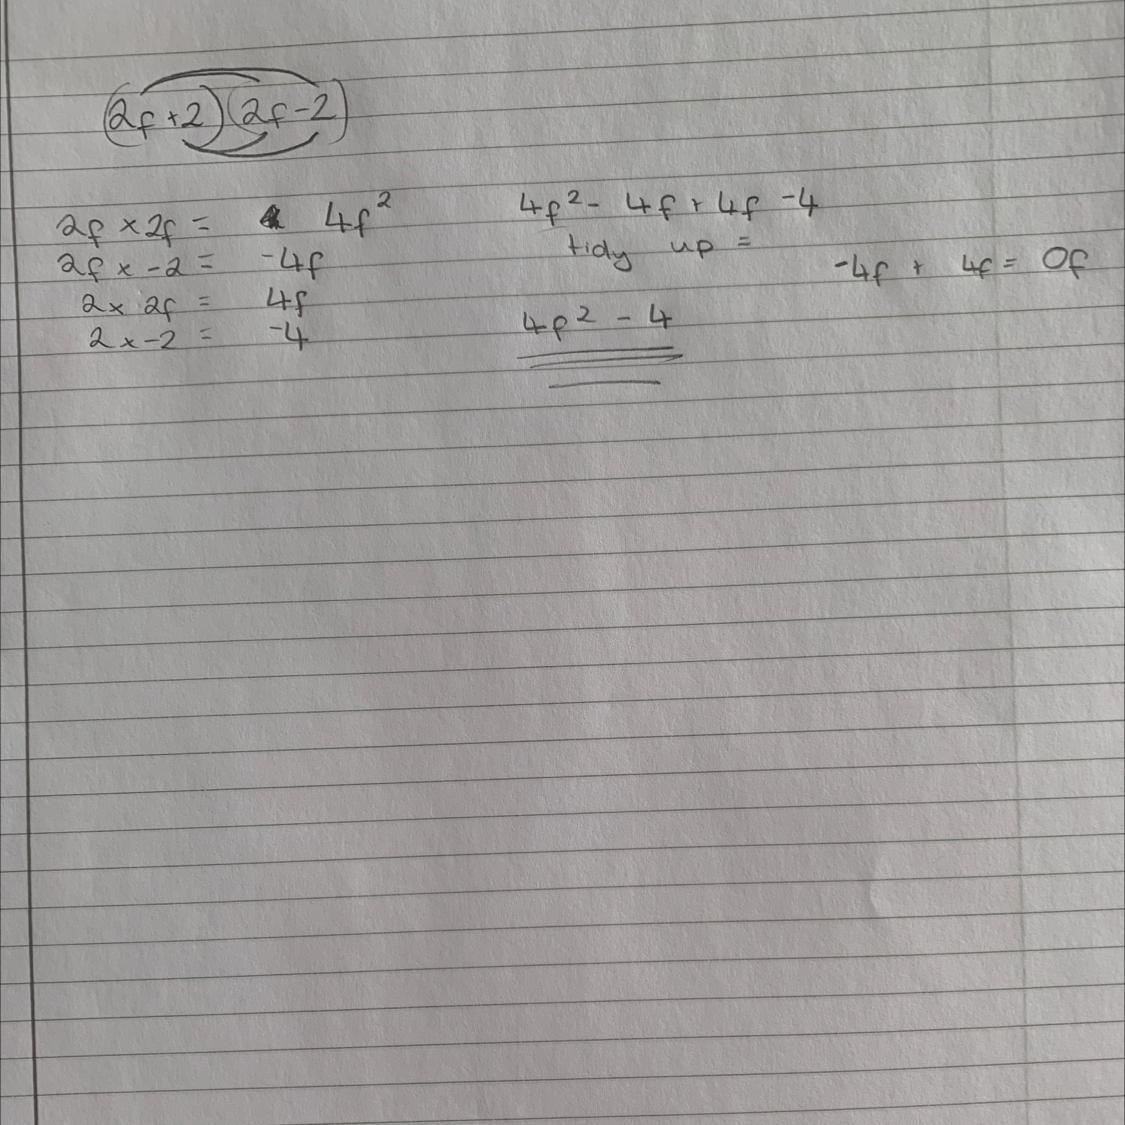 (2f+2)(2f-2)
2f × 2f = 4f²
2f × -2 = -4f
2 × 2f = 4f
2 × -2 = -4
4f² - 4f + 4f - 4
tidy up =
-4f + 4f = 0f
4f² - 4